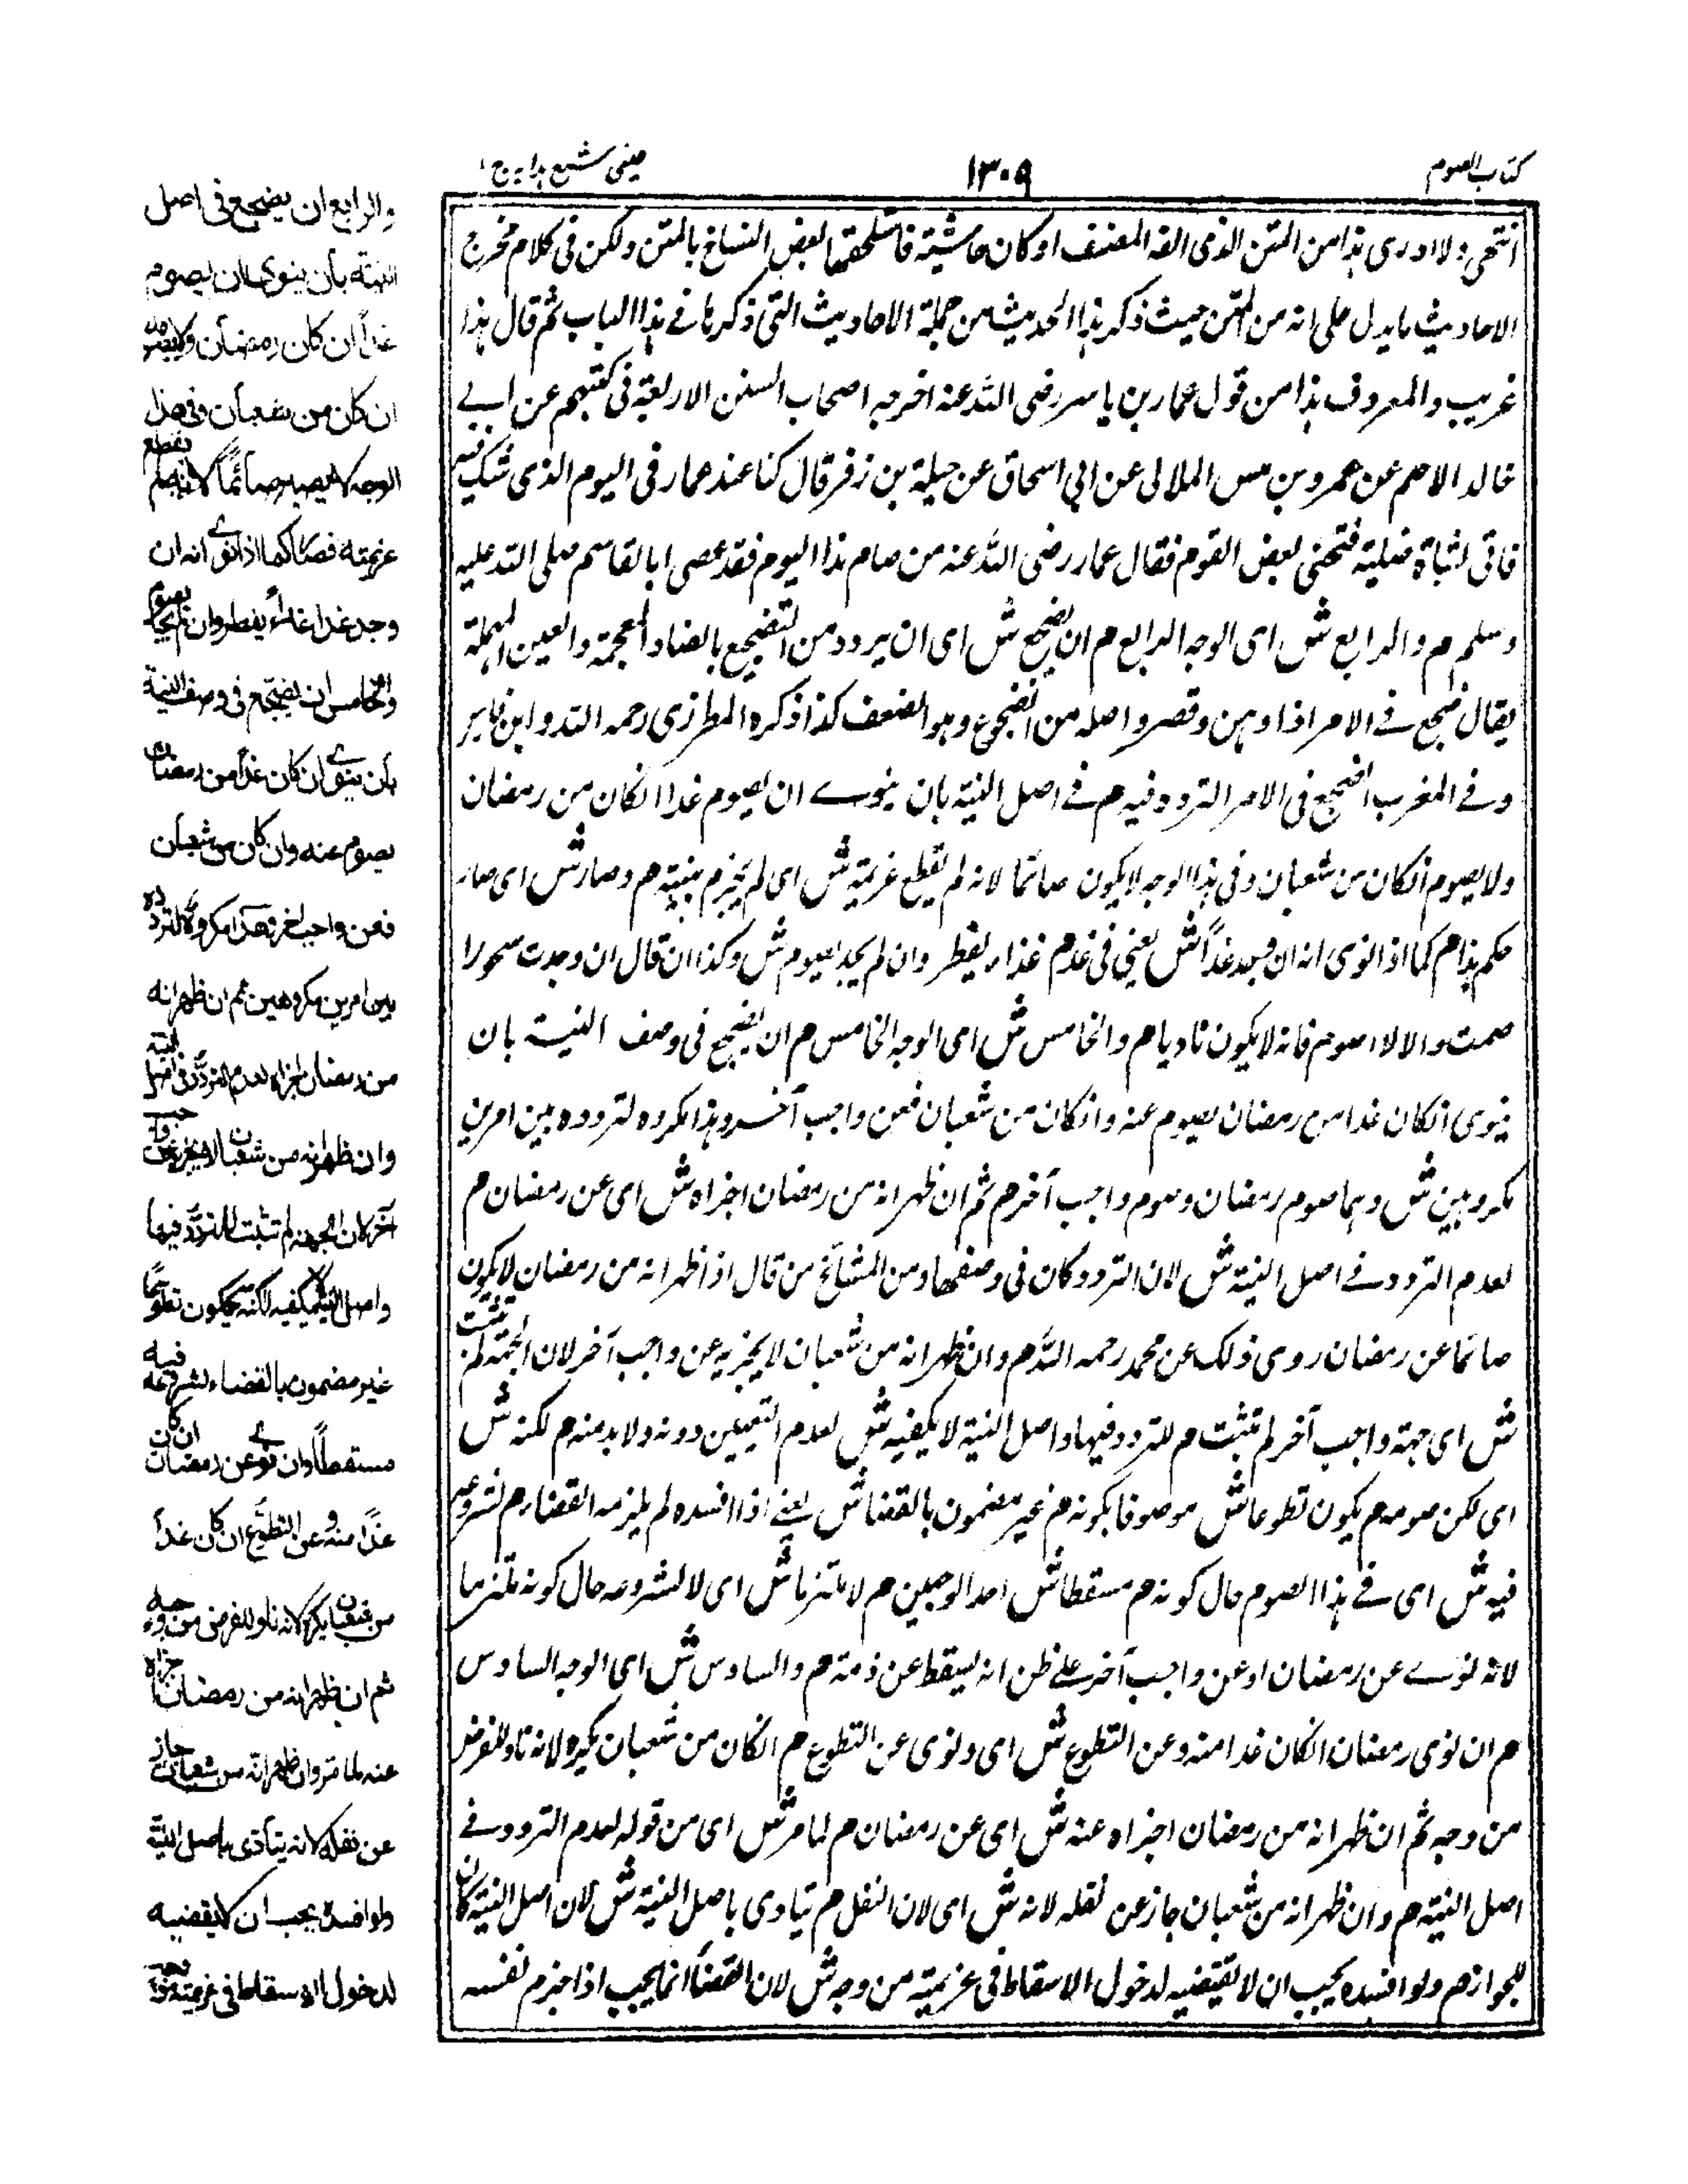 كتاب الصوم
١٣٠٩
عينى شرح هدايه ج ١
انتهى ولا ادرى هذا من المتن الذى الفه المصنف او كان حاشية فاستلحقها بعض النساخ بالمتن ولكن فى كلام مخرج
الاحاديث ما يدل على انه من المتن حيث ذكر هذا الحديث من جملة الاحاديث التى ذكرها فے هذا الباب ثم قال هذا
غريب والمعروف هذا من قول عمار بن ياسر رضى الله عنه اخرجه اصحاب السنن الاربعة فى كتبهم عن ابے
خالد الاحمر عن عمرو بن قيس الملائى عن ابى اسحاق عن صلة بن زفر قال كنا عند عمار فى اليوم الذى شك فيه
فاتى بشاة مصلية فتنحى بعض القوم فقال عمار رضى الله عنه من صام هذا اليوم فقد عصى ابا القاسم صلى الله عليه
وسلم م والرابع ش اى الوجه الرابع م ان يضجع ش اى ان يردد من التضجيع بالضاد المعجمة والعين المهملة
يقال ضجع فے الامر اذا وهن وقصر واصله من الضجوع وهو الضعف كذا ذكره المطرزى رحمه الله وابن الاثير
وفے المغرب التضجيع فى الامر التردد فيه م فے اصل النية بان ينوے ان يصوم غدا انكان من رمضان
ولا يصوم انكان من شعبان وفى هذا الوجه لا يكون صائما لانه لم يقطع عزيمته ش اى لم يجزم بنيته م وصار ش اى صار
حكم هذا م كما اذا نوى انه ان وجد غداً ش يعنى فى غد م غذاء يفطر وان لم يجد يصوم ش وكذا ان قال ان وجدت سحورا
صمت والا لا اصوم فانه لا يكون ناويا م والخامس ش اى الوجه الخامس م ان يضجع فى وصف النية بان
ينوى انكان غدا من رمضان يصوم عنه وانكان من شعبان فعن واجب آخر وهذا مكروه لتردده بين امرين
مكروهين ش وهما صوم رمضان وصوم واجب آخر م ثم ان ظهر انه من رمضان اجزاه ش اى عن رمضان م
لعدم التردد فے اصل النية ش لان التردد كان فى وصفها ومن المشائخ من قال اذا ظهر انه من رمضان لا يكون
صائما عن رمضان روى ذلك عن محمد رحمه الله م وان ظهر انه من شعبان لا يجزيه عن واجب آخر لان الجهة لم تثبت
ش اى جهة واجب آخر لم تثبت م للتردد فيها واصل النية لا يكفيه ش لعدم التعيين دونه ولا بد منه م لكنه ش
اى لكن صومه م يكون تطوعا ش موصوفا بكونه م غير مضمون بالقضا ش يعنے اذا افسده لم يلزمه القضاء م لشروعه
فيه ش اى فے هذا الصوم حال كونه م مسقطا ش احد الوجهين م لا ملتزما ش اى لا لشروعه حال كونه ملتزما
لانه نوے عن رمضان او عن واجب آخر علے ظن انه يسقط عن ذمته م والسادس ش اى الوجه السادس
م ان نوى رمضان انكان غدا منه وعن التطوع ش اى ونوى عن التطوع م انكان من شعبان يكره لانه ناو للفرض
من وجه ثم ان ظهر انه من رمضان اجزاه عنه ش اى عن رمضان م لما مر ش اى من قوله لعدم التردد فے
اصل النية م وان ظهر انه من شعبان جاز عن نفله لانه ش اى لان النفل م يتادى باصل النية ش لان اصل النية كان
للجواز م ولو افسده يجب ان لا يقضيه لدخول الاسقاط فى عزيمته من وجه ش لان القضاء انما يجب اذا جزم نفسه
والرابع ان يضجع فى اصل
النية بأن ينوى ان يصوم
غداً ان كان رمضان ولا يصومه
ان كان من شعبان وفى هذا
الوجه لا يصير صائماً لانه لم يقطع
عزيمته فصار كما اذا نوے انه ان
وجد غدا غداءً يفطر وان لم يجد يصوم
والخامس ان يضجع فى وصف النية
بأن ينوے ان كان غداً من رمضان
يصوم عنه وان كان من شعبان
فعن واجب اخر وهذا مكروه لتردده
بين امرين مكروهين ثم ان ظهر انه
من رمضان اجزاه لعدم التردد فى اصل النية
وان ظهر انه من شعبان لا يجزيه عن واجب
آخر لان الجهة لم تثبت للتردد فيها
واصل النية لا يكفيه لكنه يكون تطوعًا
غير مضمون بالقضاء لشروعه فيه
مسقطاً وان نوى عن رمضان ان كان
غدًا منه وعن التطوع ان كان غداً
من شعبان يكره لانه ناو للفرض من وجه
ثم ان ظهر انه من رمضان اجزاه
عنه لما مر وان ظهر انه من شعبان جاز
عن نفله لانه يتأدى باصل النية
ولو افسده يجب ان لا يقضيه
لدخول الاسقاط فى عزيمته من وجه